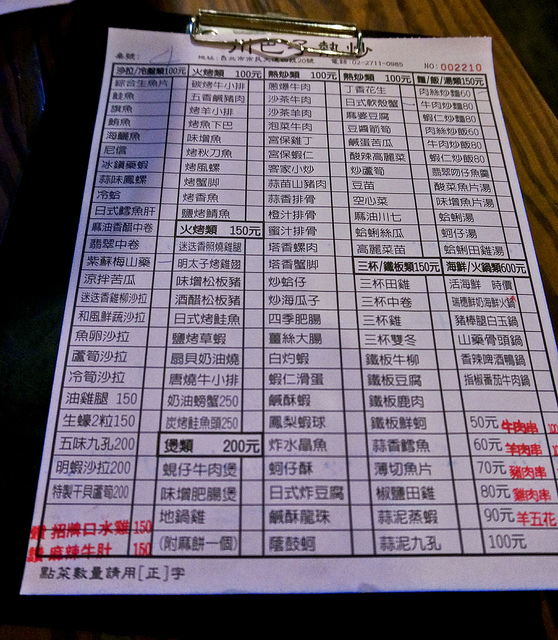 熱炒
NO: 002210
沙拉/冷盤類100元 火烤類 100元 熱炒類 100元 熱炒類 100元 麵/飯/湯類150元
綜合生魚片 碳烤牛小排 蔥爆牛肉 丁香花生 肉絲炒麵60
鮭魚 五香鹹豬肉 沙茶牛肉 日式軟殼蟹 牛肉炒麵80
旗魚 烤羊小排 沙茶羊肉 麻婆豆腐 蝦仁炒麵80
鮪魚 烤魚下巴 泡菜牛肉 豆醬箭筍 肉絲炒飯60
海鱺魚 味增魚 宮保雞丁 鹹蛋苦瓜 牛肉炒飯80
尼信 烤秋刀魚 宮保蝦仁 酸辣高麗菜 蝦仁炒飯80
冰鎮藥蝦 烤風螺 客家小炒 炒蘆筍 翡翠吻仔魚羹
蒜味鳳螺 烤蟹脚 蒜苗山豬肉 豆苗 酸菜魚片湯
冷蛤 烤香魚 蒜香排骨 空心菜 味增魚片湯
日式鱈魚肝 鹽烤鯖魚 橙汁排骨 麻油川七 蛤蜊湯
麻油香醋中卷 火烤類 150元 蜜汁排骨 蛤蜊絲瓜 蚵仔湯
翡翠中卷 迷迭香照燒雞腿 塔香螺肉 高麗菜苗 蛤蜊田雞湯
紫蘇梅山藥 明太子烤雞翅 塔香蟹脚 三杯/鐵板類150元 海鮮/火鍋類600元
涼拌苦瓜 味增松板豬 炒蛤仔 三杯田雞 活海鮮 時價
迷迭香雞柳沙拉 酒醋松板豬 炒海瓜子 三杯中卷 瑞穗鮮奶海鮮火鍋
和風鮮蔬沙拉 日式烤鮭魚 四季肥腸 三杯雞 豬棒腿白玉鍋
魚卵沙拉 鹽烤草蝦 薑絲大腸 三杯雙冬 山藥骨頭鍋
蘆筍沙拉 扇貝奶油燒 白灼蝦 鐵板牛柳 香辣啤酒鴨鍋
冷筍沙拉 唐燒牛小排 蝦仁滑蛋 鐵板豆腐 指椒番茄牛肉鍋
油雞腿 150 奶油螃蟹250 鹹酥蝦 鐵板鹿肉
生蠔2粒150 炭烤鮭魚頭250 鳳梨蝦球 鐵板鮮蚵 50元 牛肉串
五味九孔200 煲類 200元 炸水晶魚 蒜香鱈魚 60元 羊肉串
明蝦沙拉200 蜆仔牛肉煲 蚵仔酥 薄切魚片 70元 豬肉串
特製干貝蘆筍200 味增肥腸煲 日式炸豆腐 椒鹽田雞 80元 雞肉串
讚 招牌口水雞 150 地鍋雞 鹹酥龍珠 蒜泥蒸蝦 90元 羊五花
讚 麻辣牛肚 150 (附麻餅一個) 蔭鼓蚵 蒜泥九孔 100元
點菜數量請用[正]字